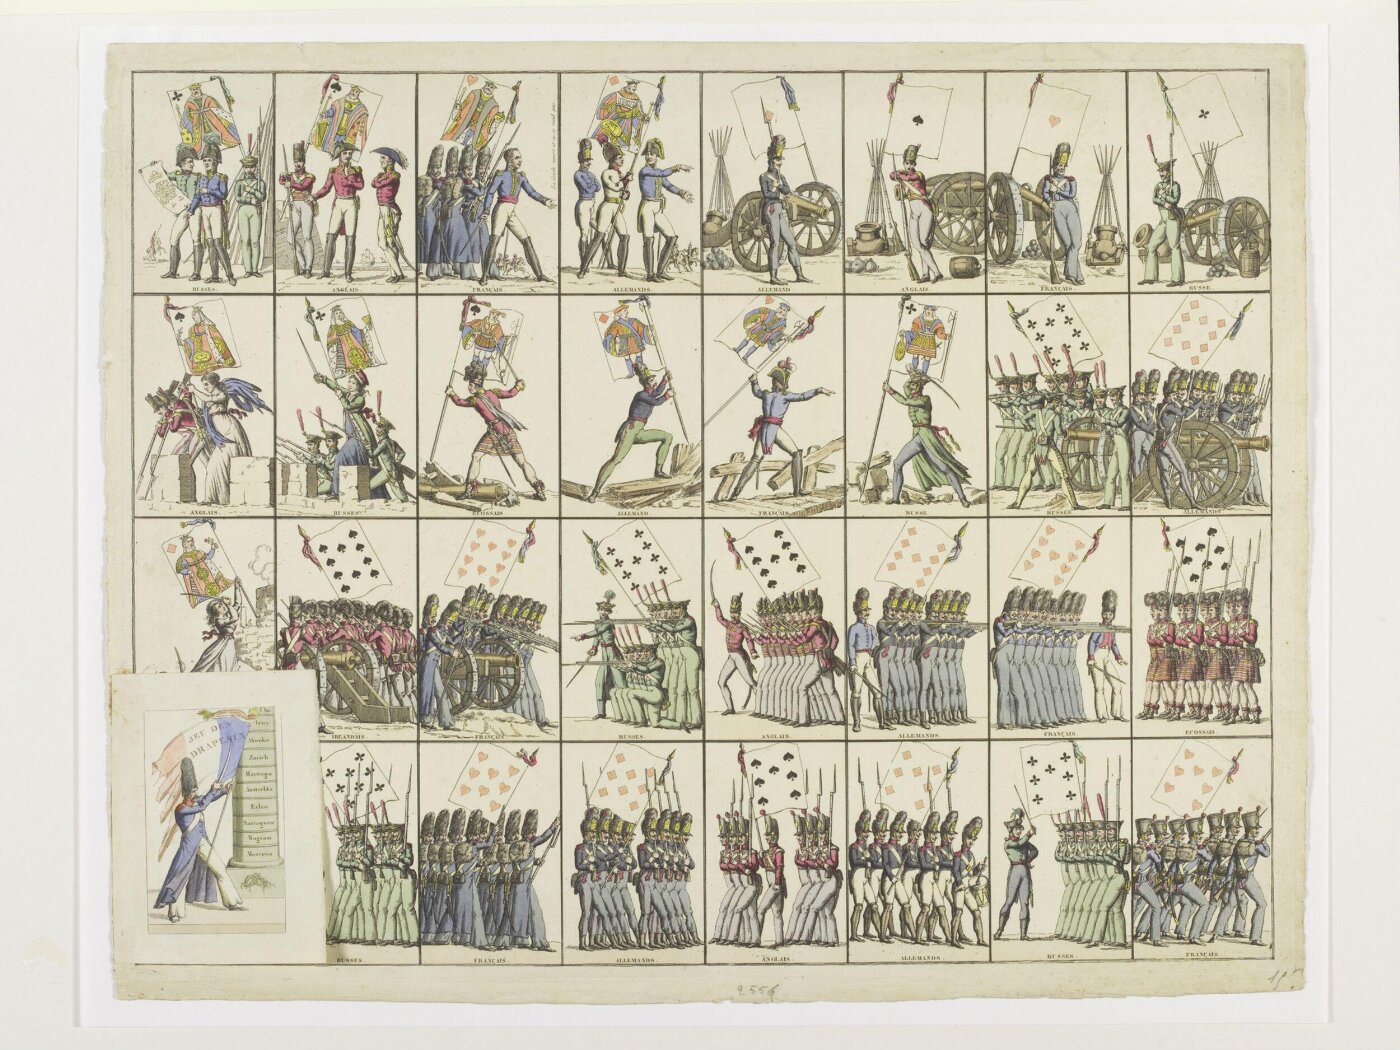 RUSSES.
ANGLAIS.
FRANÇAIS
ALLEMANDS.
ALLEMAND
ANGLAIS.
FRANÇAIS.
RUSSE.
ANGLAIS.
RUSSES
ECOSSAIS
ALLEMAND.
FRANÇAIS.
RUSSE
RUSSES
ALLEMANDS
IRLANDAIS.
FRANÇAIS.
RUSSES
ANGLAIS.
ALLEMANDS
FRANÇAIS
ECOSSAIS
JEU DES
DRAPEAUX
Ulm
Iena
Zurich
Marengo
Austerlitz
Eylau
Sarragosse
Wagram
Moscowa
RUSSES.
FRANÇAIS.
ALLEMANDS.
ANGLAIS.
ALLEMANDS.
RUSSES.
FRANÇAIS